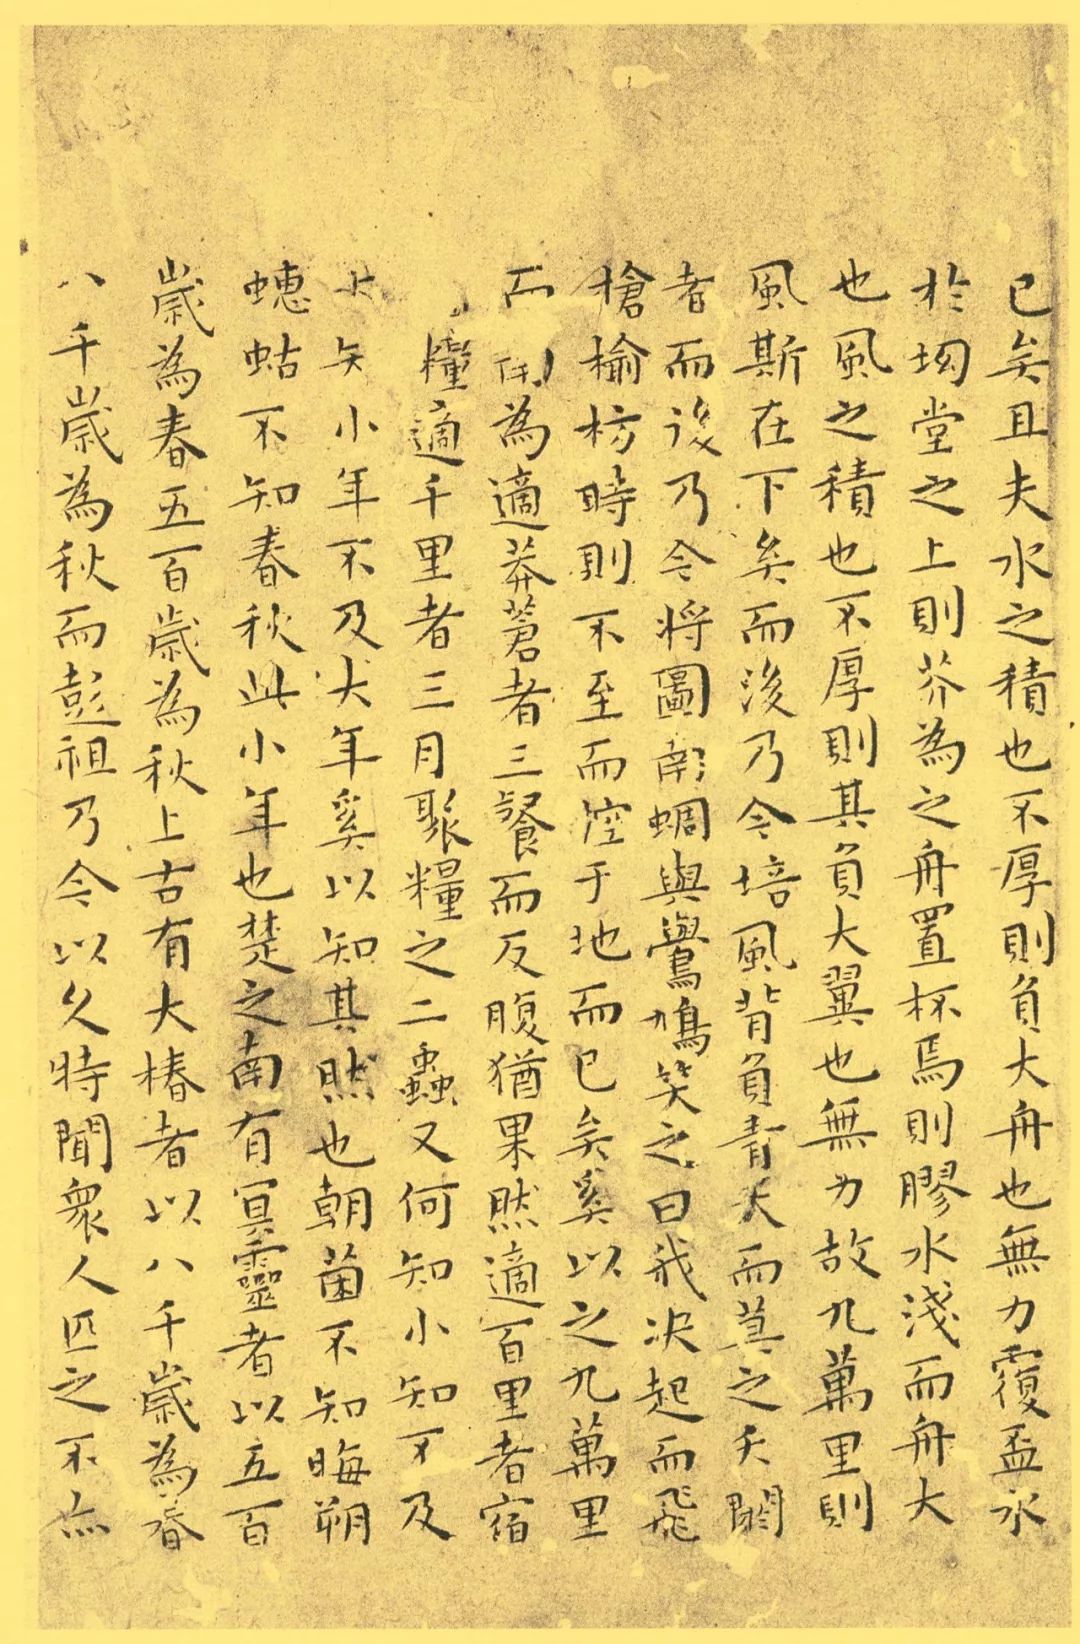 已矣且夫水之積也不厚則負大舟也無力覆盃水
於坳堂之上則芥為之舟置杯焉則膠水淺而舟大
也風之積也不厚則其負大翼也無力故九萬里則
風斯在下矣而後乃今培風背負青天而莫之夭閼
者而後乃今將圖南蜩與鷽鳩笑之曰我决起而飛
槍榆枋時則不至而淳于地而已矣奚以之九萬里
而為適莽蒼者三飡而反腹猶果然適百里者宿
糧適千里者三月聚糧之二蟲又何知小知不及
大知小年不及大年奚以知其然也朝菌不知晦朔
蟪蛄不知春秋此小年也楚之南有冥靈者以五百
歲為春五百歲為秋上古有大椿者以八千歲為春
八千歲為秋而彭祖乃今以久時聞衆人匹之不亦